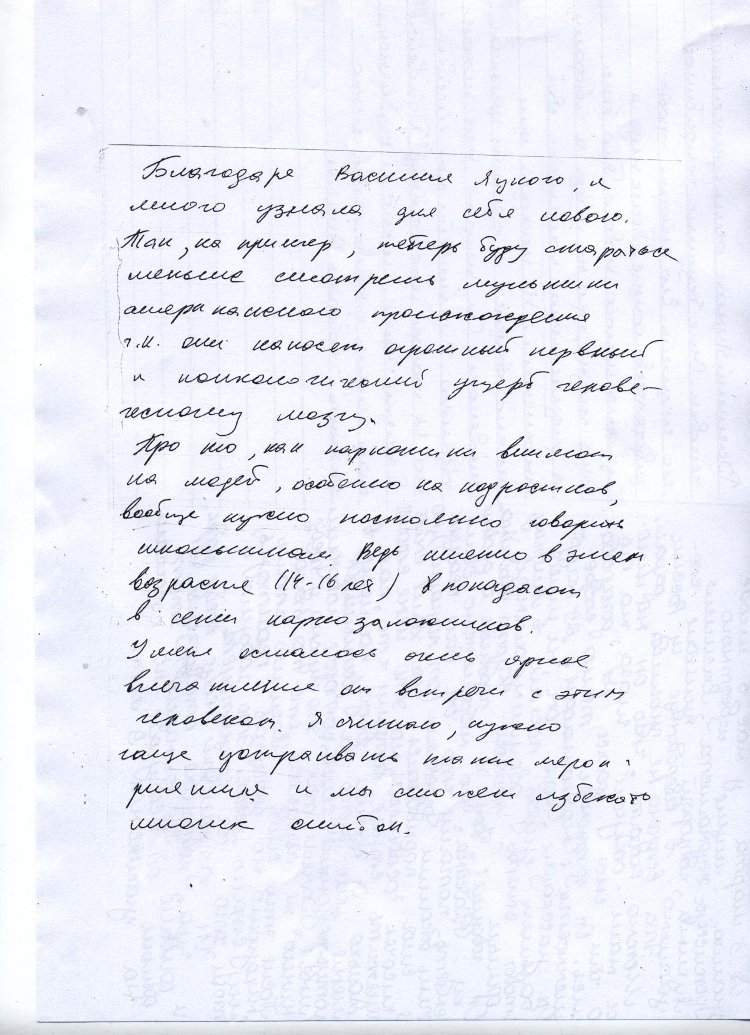 Благодаря Василия Яцкого, я
много узнала для себя нового.
Так, на пример, теперь буду стараться
меньше смотреть мультики
американского происхождения
т.к. они наносят огромный нервный
и психологический ущерб челове-
ческому мозгу.
Про то, как наркотики влияют
на людей, особенно на подростков,
вообще нужно постоянно говорить
школьникам. Ведь именно в этом
возрасте (14-16 лет) попадают
в сети наркозаложников.
У меня осталось очень яркое
впечатление от встречи с этим
человеком. Я считаю, нужно
чаще устраивать такие мероп-
риятия и мы сможем избежать
многих ошибок.